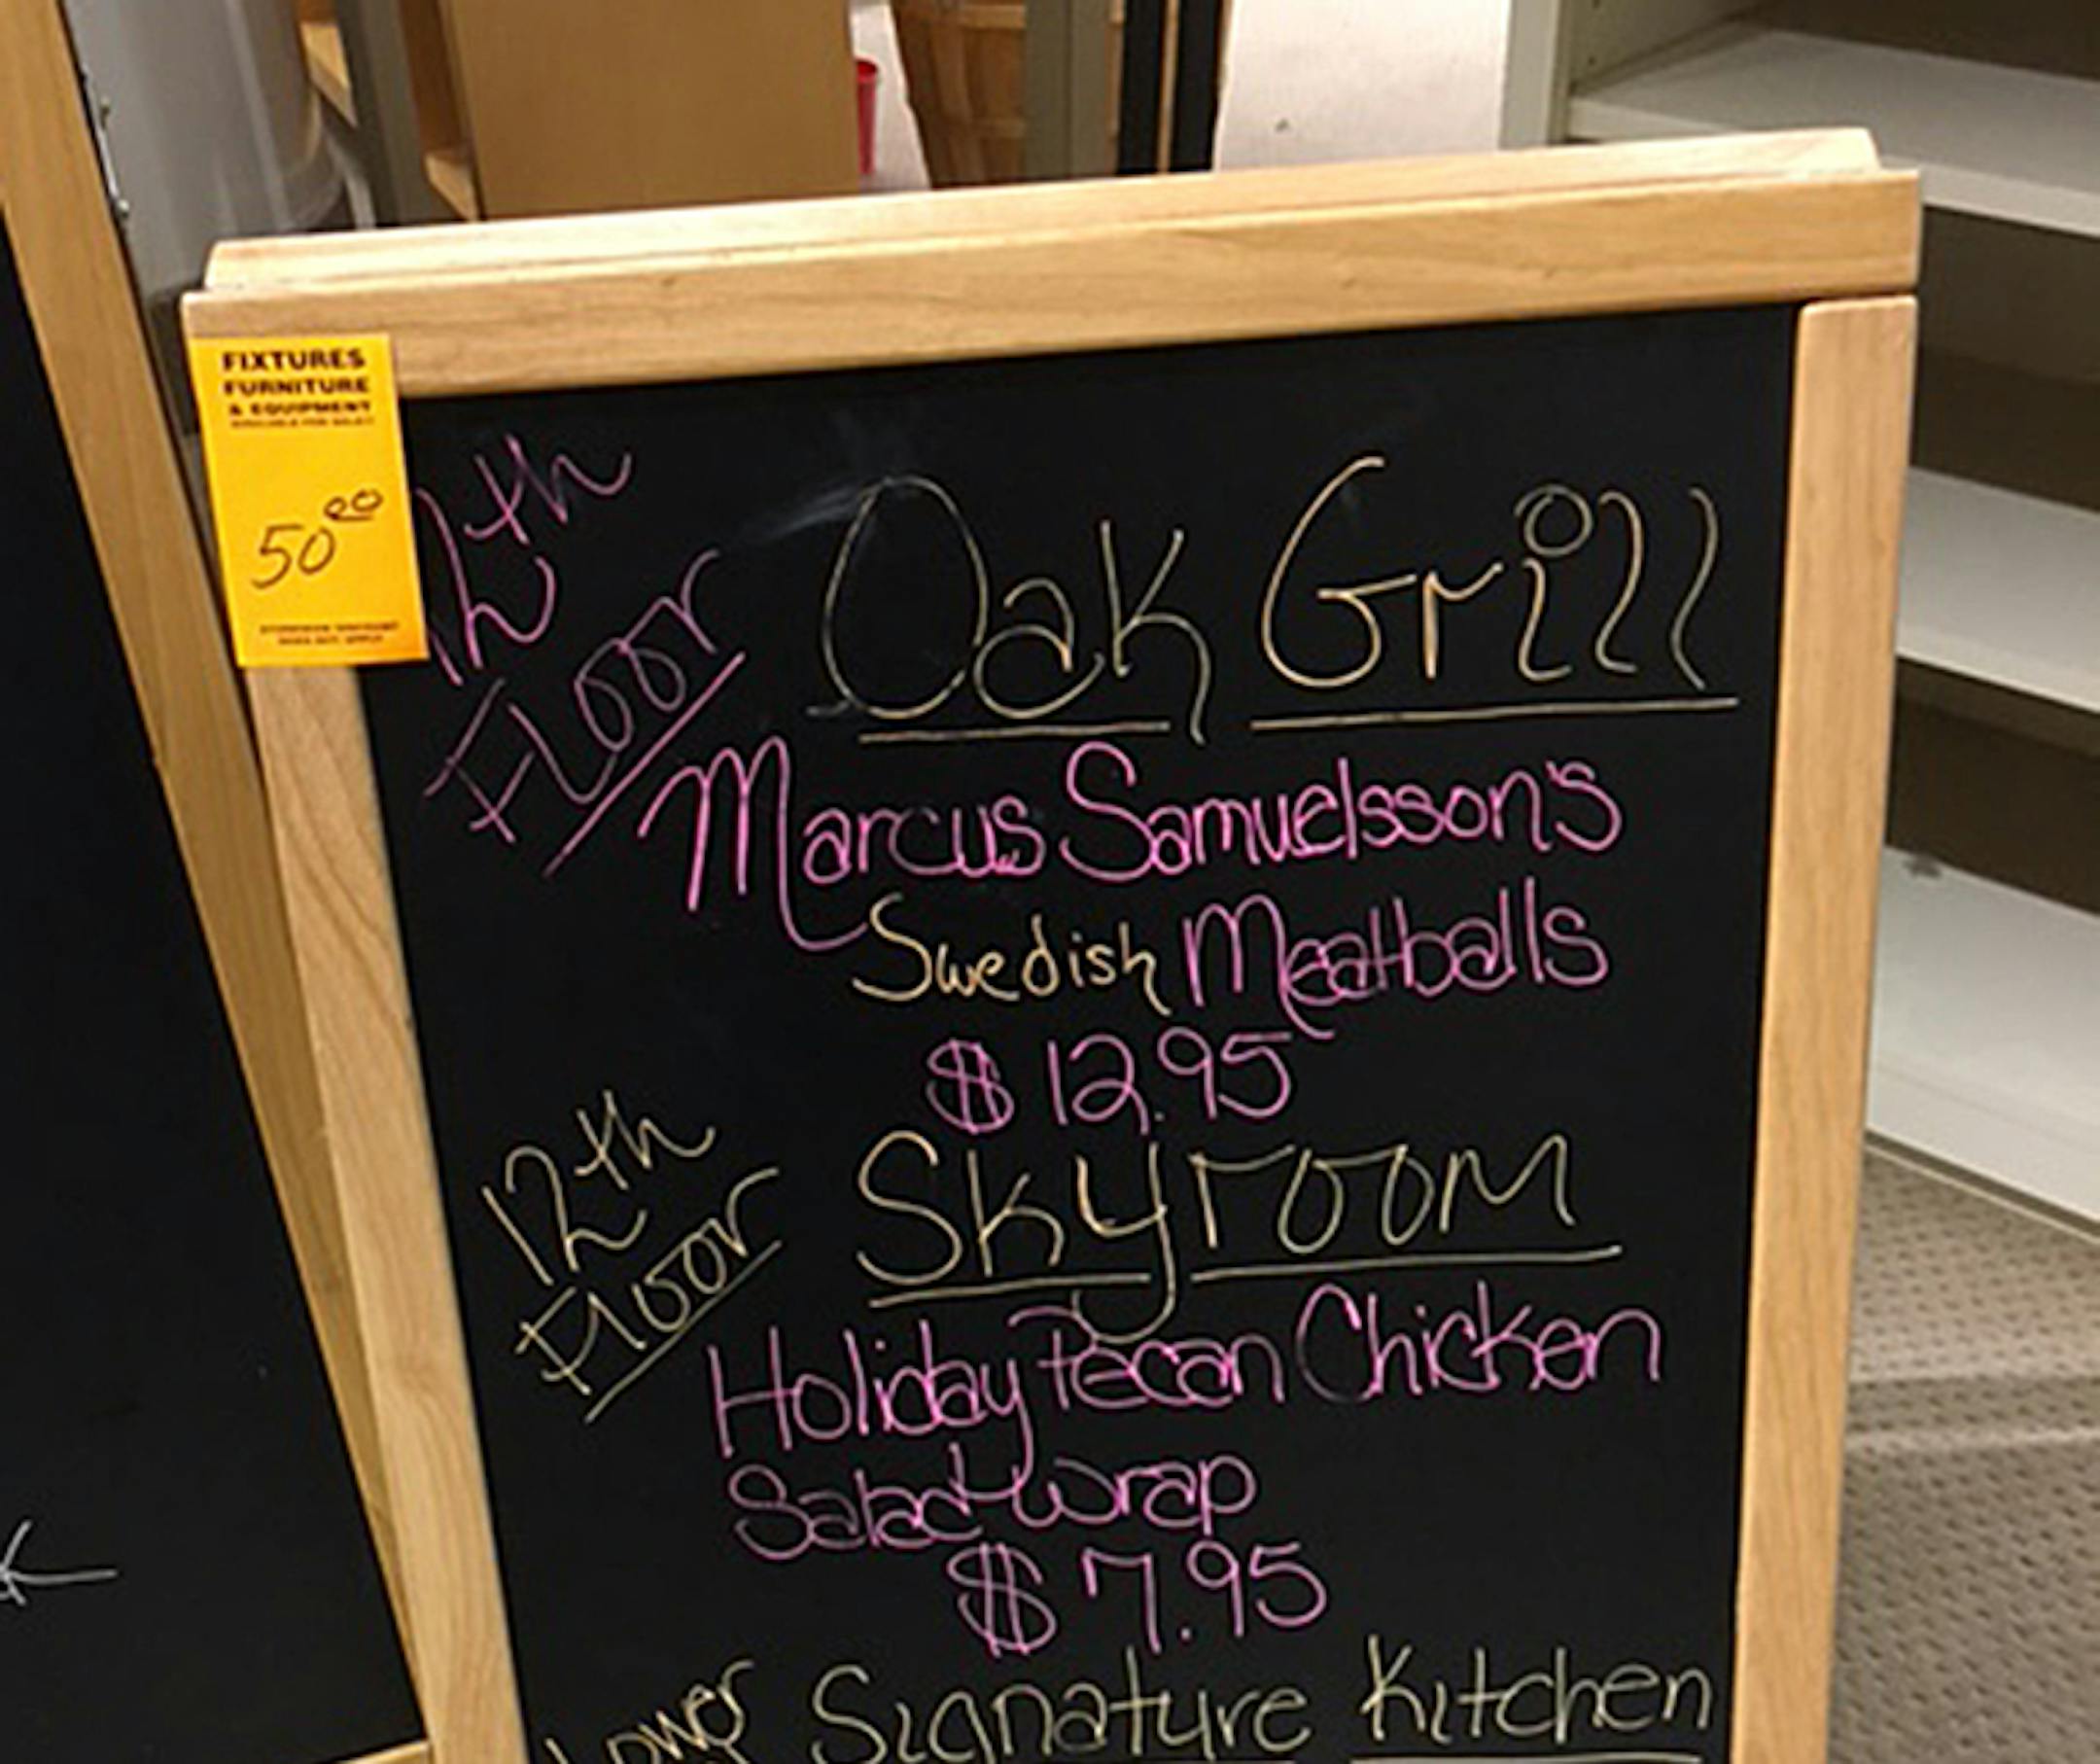 FIXTURES
FURNITURE
& EQUIPMENT
50 00
12th
Floor
Oak Grill
Marcus Samuelsson's
Swedish Meatballs
$12.95
12th
Floor
Skyroom
Holiday Pecan Chicken
Salad Wrap
$7.95
Lower
Signature Kitchen